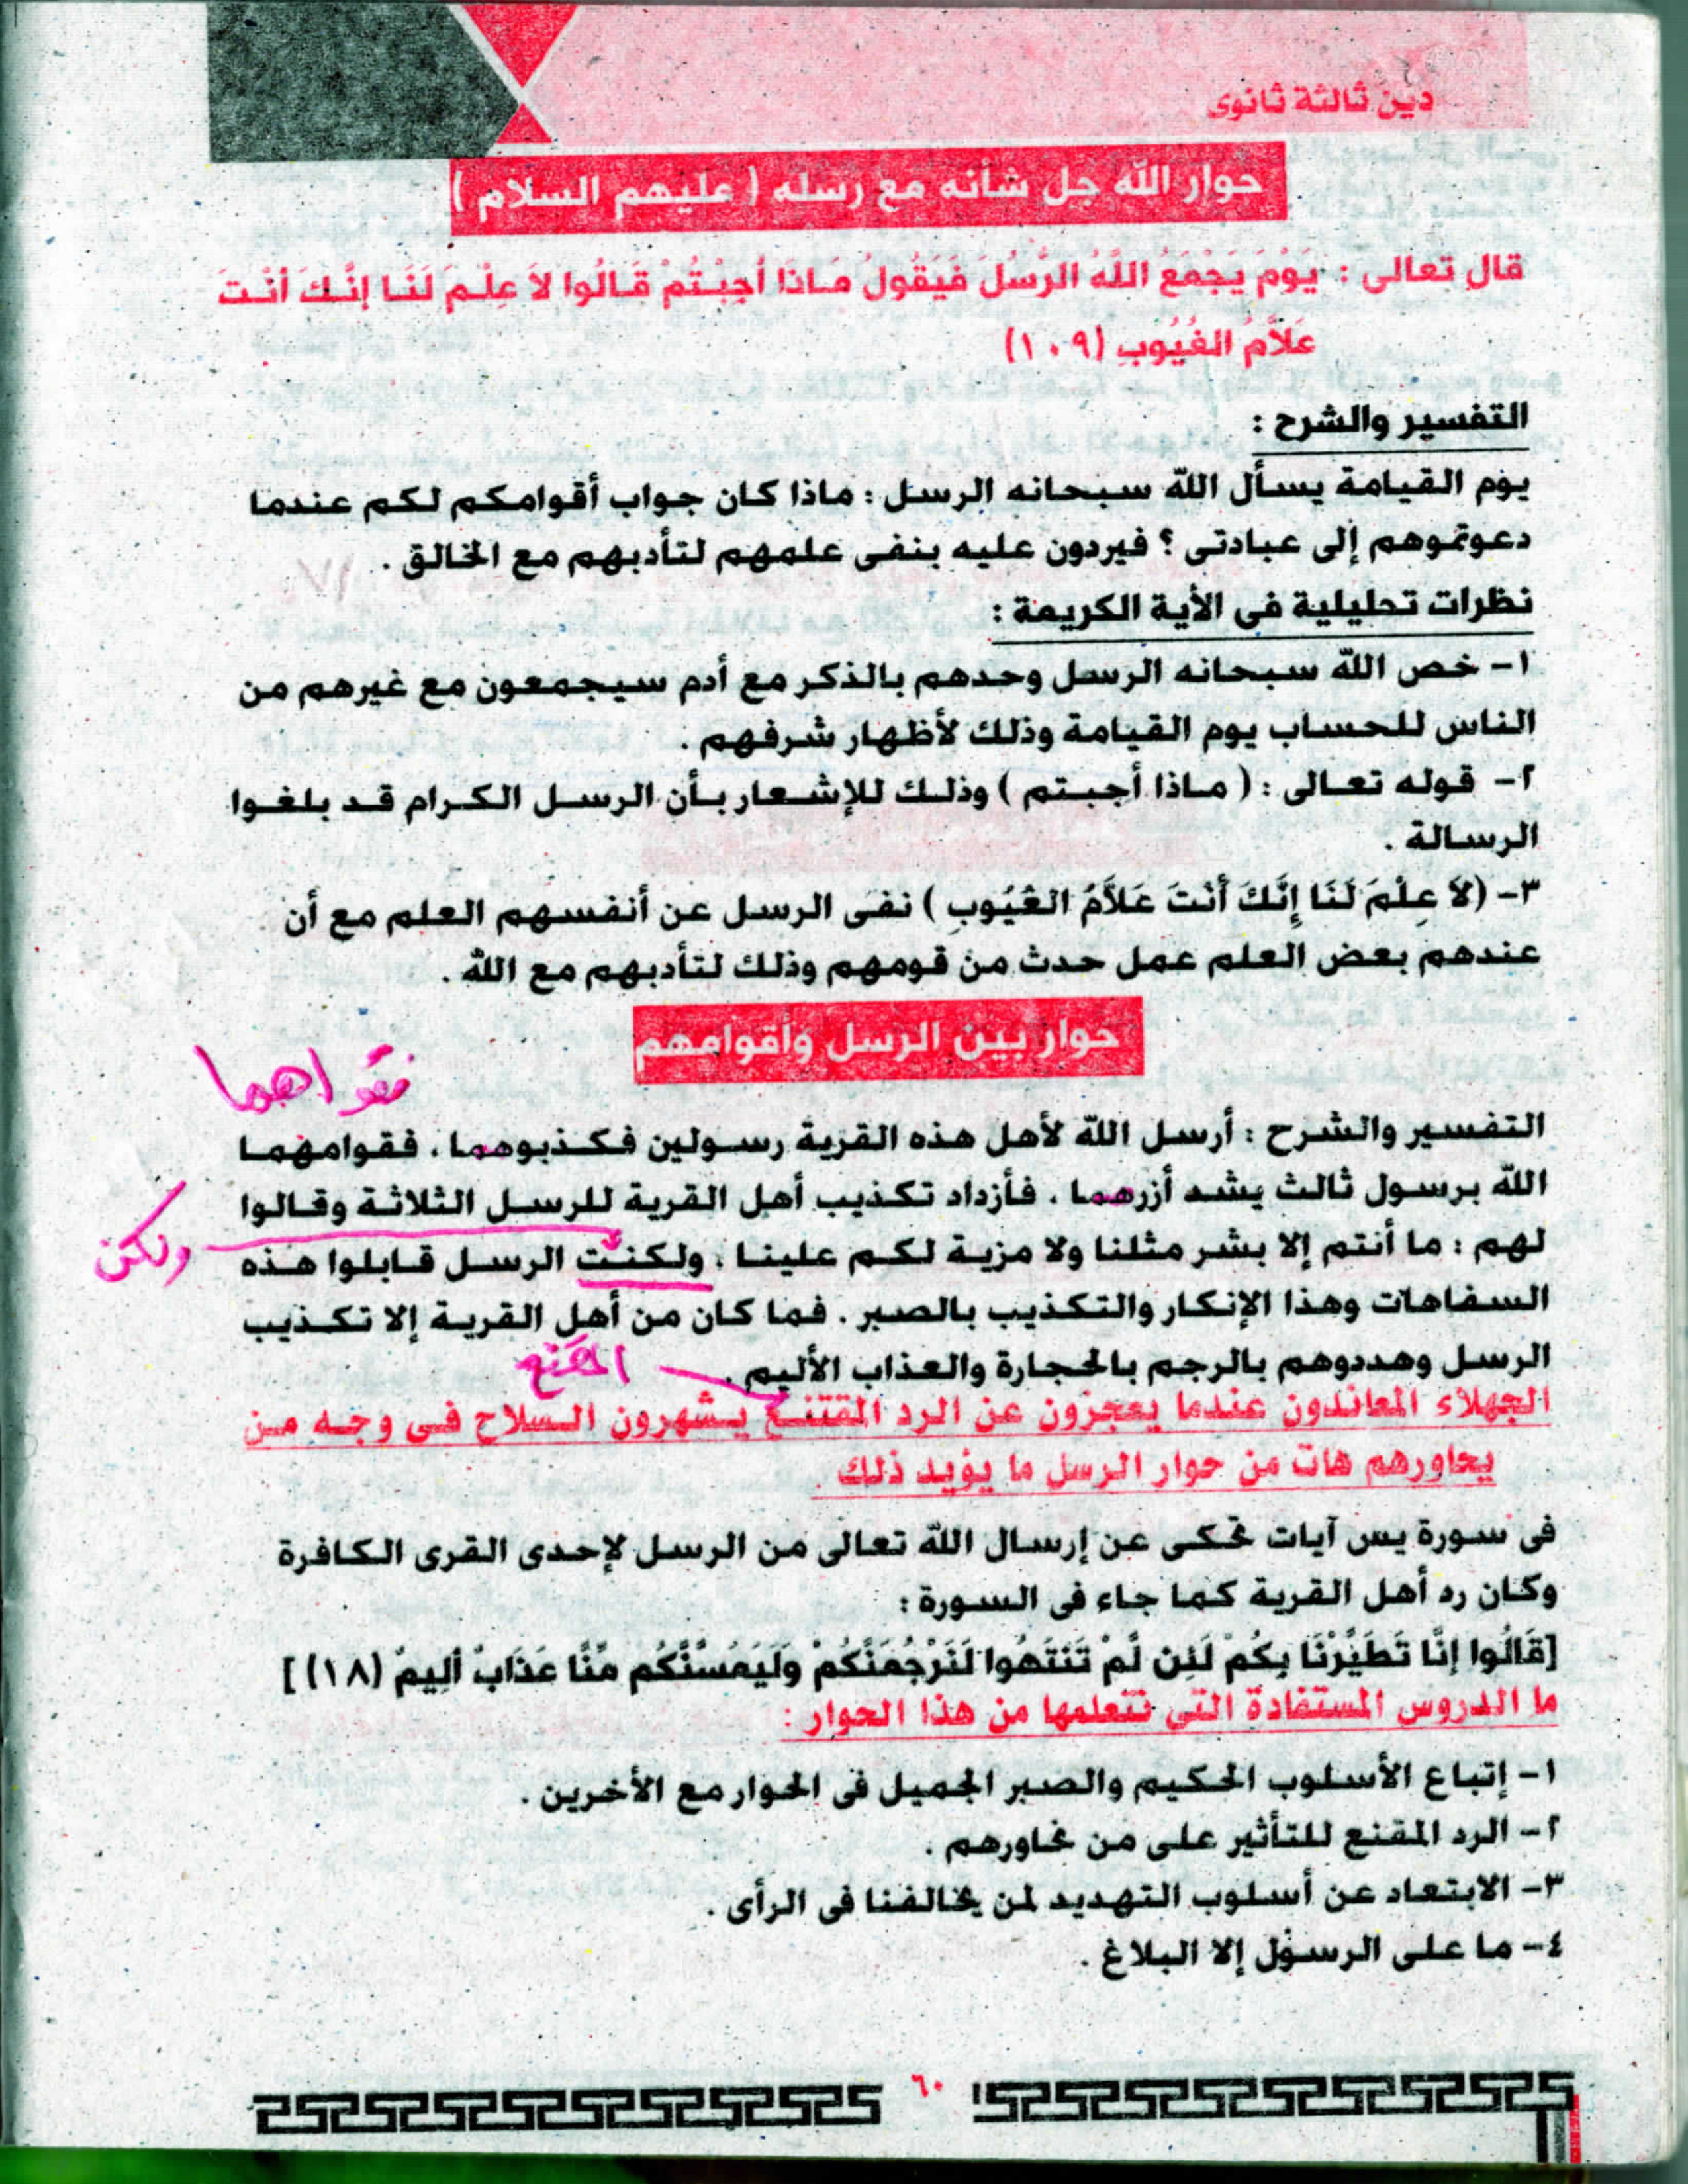 دين ثالثة ثانوى
حوار الله جل شأنه مع رسله ( عليهم السلام )
قال تعالى : يَوْمَ يَجْمَعُ اللَّهُ الرُّسُلَ فَيَقُولُ مَاذَا أُجِبْتُمْ قَالُوا لاَ عِلْمَ لَنَا إِنَّكَ أَنْتَ
عَلاَّمُ الغُيُوبِ (١٠٩)
التفسير والشرح :
يوم القيامة يسأل الله سبحانه الرسل : ماذا كان جواب أقوامكم لكم عندما
دعوتموهم إلى عبادتى ؟ فيردون عليه بنفى علمهم لتأدبهم مع الخالق .
نظرات تحليلية فى الأية الكريمة :
١- خص الله سبحانه الرسل وحدهم بالذكر مع أدم سيجمعون مع غيرهم من
الناس للحساب يوم القيامة وذلك لأظهار شرفهم .
٢- قوله تعالى : ( ماذا أجبتم ) وذلك للإشعار بأن الرسل الكرام قد بلغوا
الرسالة .
٣- (لاَ عِلْمَ لَنَا إِنَّكَ أَنْتَ عَلاَّمُ الغُيُوبِ ) نفى الرسل عن أنفسهم العلم مع أن
عندهم بعض العلم عمل حدث من قومهم وذلك لتأدبهم مع الله .
حوار بين الرسل وأقوامهم
فقواهما
التفسير والشرح : أرسل الله لأهل هذه القرية رسولين فكذبوهما . فقوامهما
الله برسول ثالث يشد أزرهما . فأزداد تكذيب أهل القرية للرسل الثلاثة وقالوا
لهم : ما أنتم إلا بشر مثلنا ولا مزية لكم علينا . ولكنت الرسل قابلوا هذه
ولكن
السفاهات وهذا الإنكار والتكذيب بالصبر . فما كان من أهل القرية إلا تكذيب
الرسل وهددوهم بالرجم بالحجارة والعذاب الأليم .
المقنع
الجهلاء المعاندون عندما يعجزون عن الرد المقتنع يشهرون السلاح فى وجه من
يحاورهم هات من حوار الرسل ما يؤيد ذلك .
فى سورة يس آيات تحكى عن إرسال الله تعالى من الرسل لإحدى القرى الكافرة
وكان رد أهل القرية كما جاء فى السورة :
[قَالُوا إِنَّا تَطَيَّرْنَا بِكُمْ لَئِن لَّمْ تَنتَهُوا لَنَرْجُمَنَّكُمْ وَلَيَمَسَّنَّكُم مِّنَّا عَذَابٌ أَلِيمٌ (١٨) ]
ما الدروس المستفادة التى نتعلمها من هذا الحوار :
١- إتباع الأسلوب الحكيم والصبر الجميل فى الحوار مع الأخرين .
٢- الرد المقنع للتأثير على من نحاورهم .
٣- الابتعاد عن أسلوب التهديد لمن يخالفنا فى الرأى .
٤- ما على الرسول إلا البلاغ .
٦٠